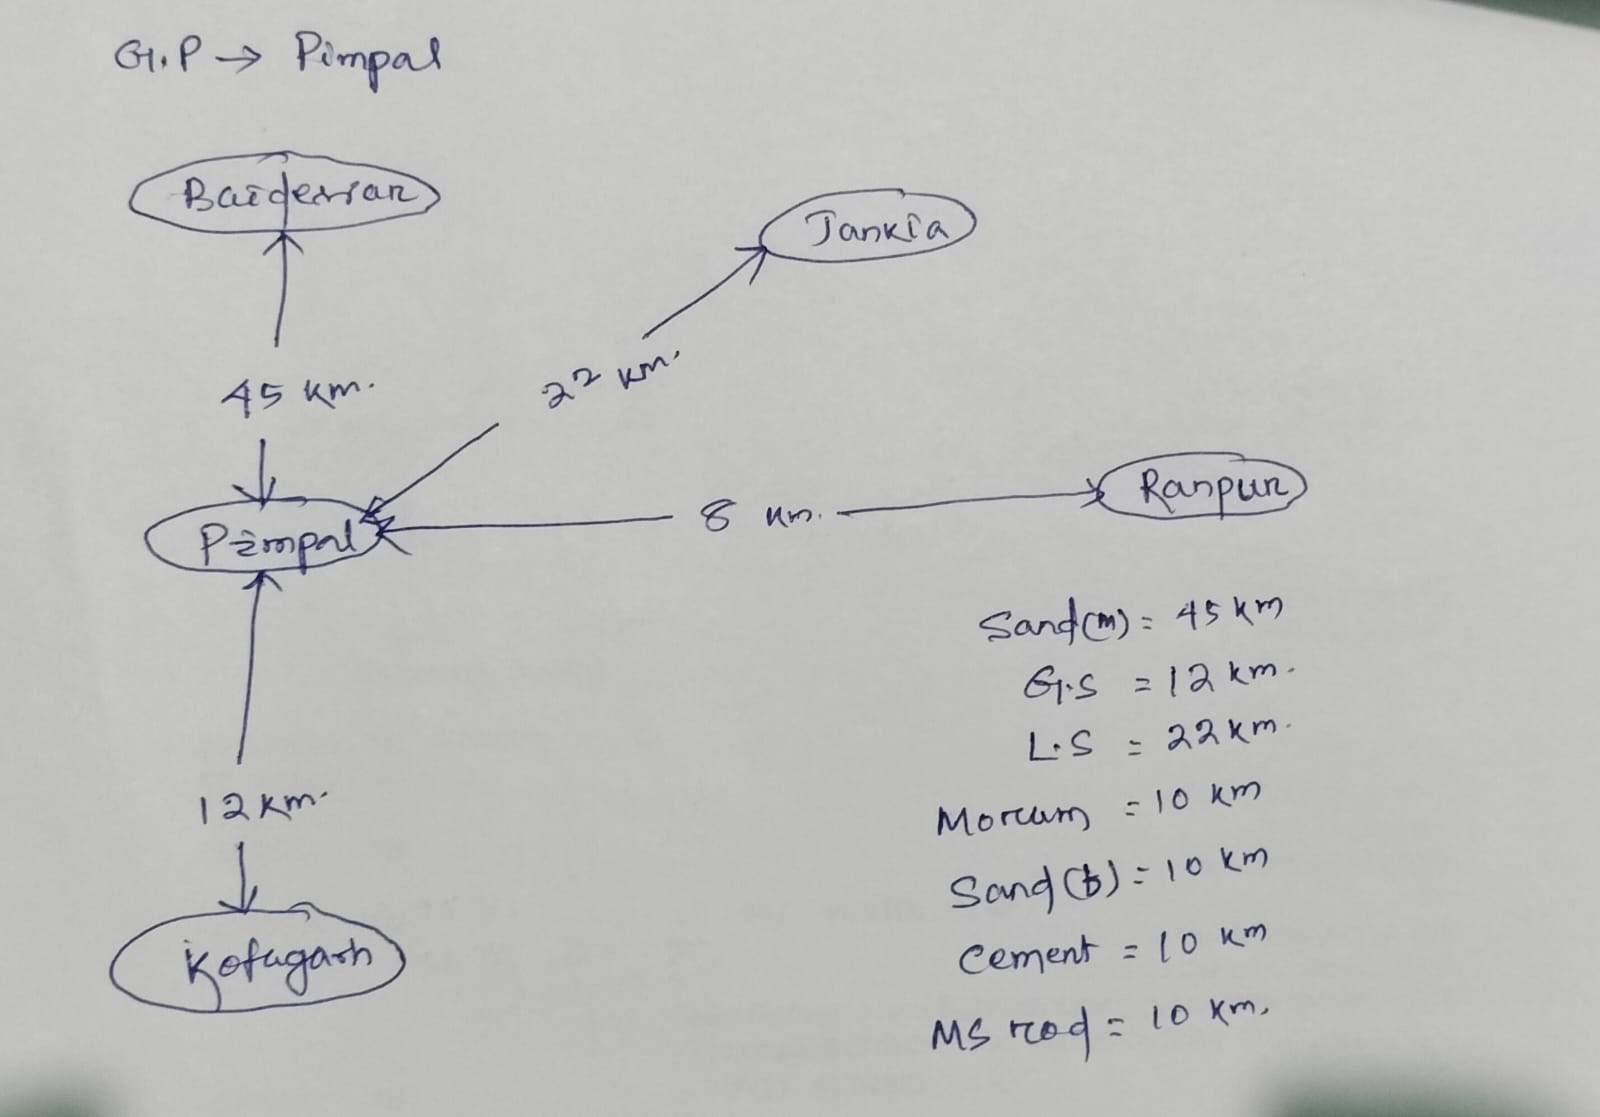 G.P → Pimpal
Baidessar
Jankia
45 km.
22 km.
Pimpal
8 km.
Ranpur
Sand(m) = 45 km
G.S = 12 km.
L.S = 22 km.
Morum = 10 km
12 km.
Sand(b) = 10 km
Kotagarh
Cement = 10 km
MS rod = 10 km.